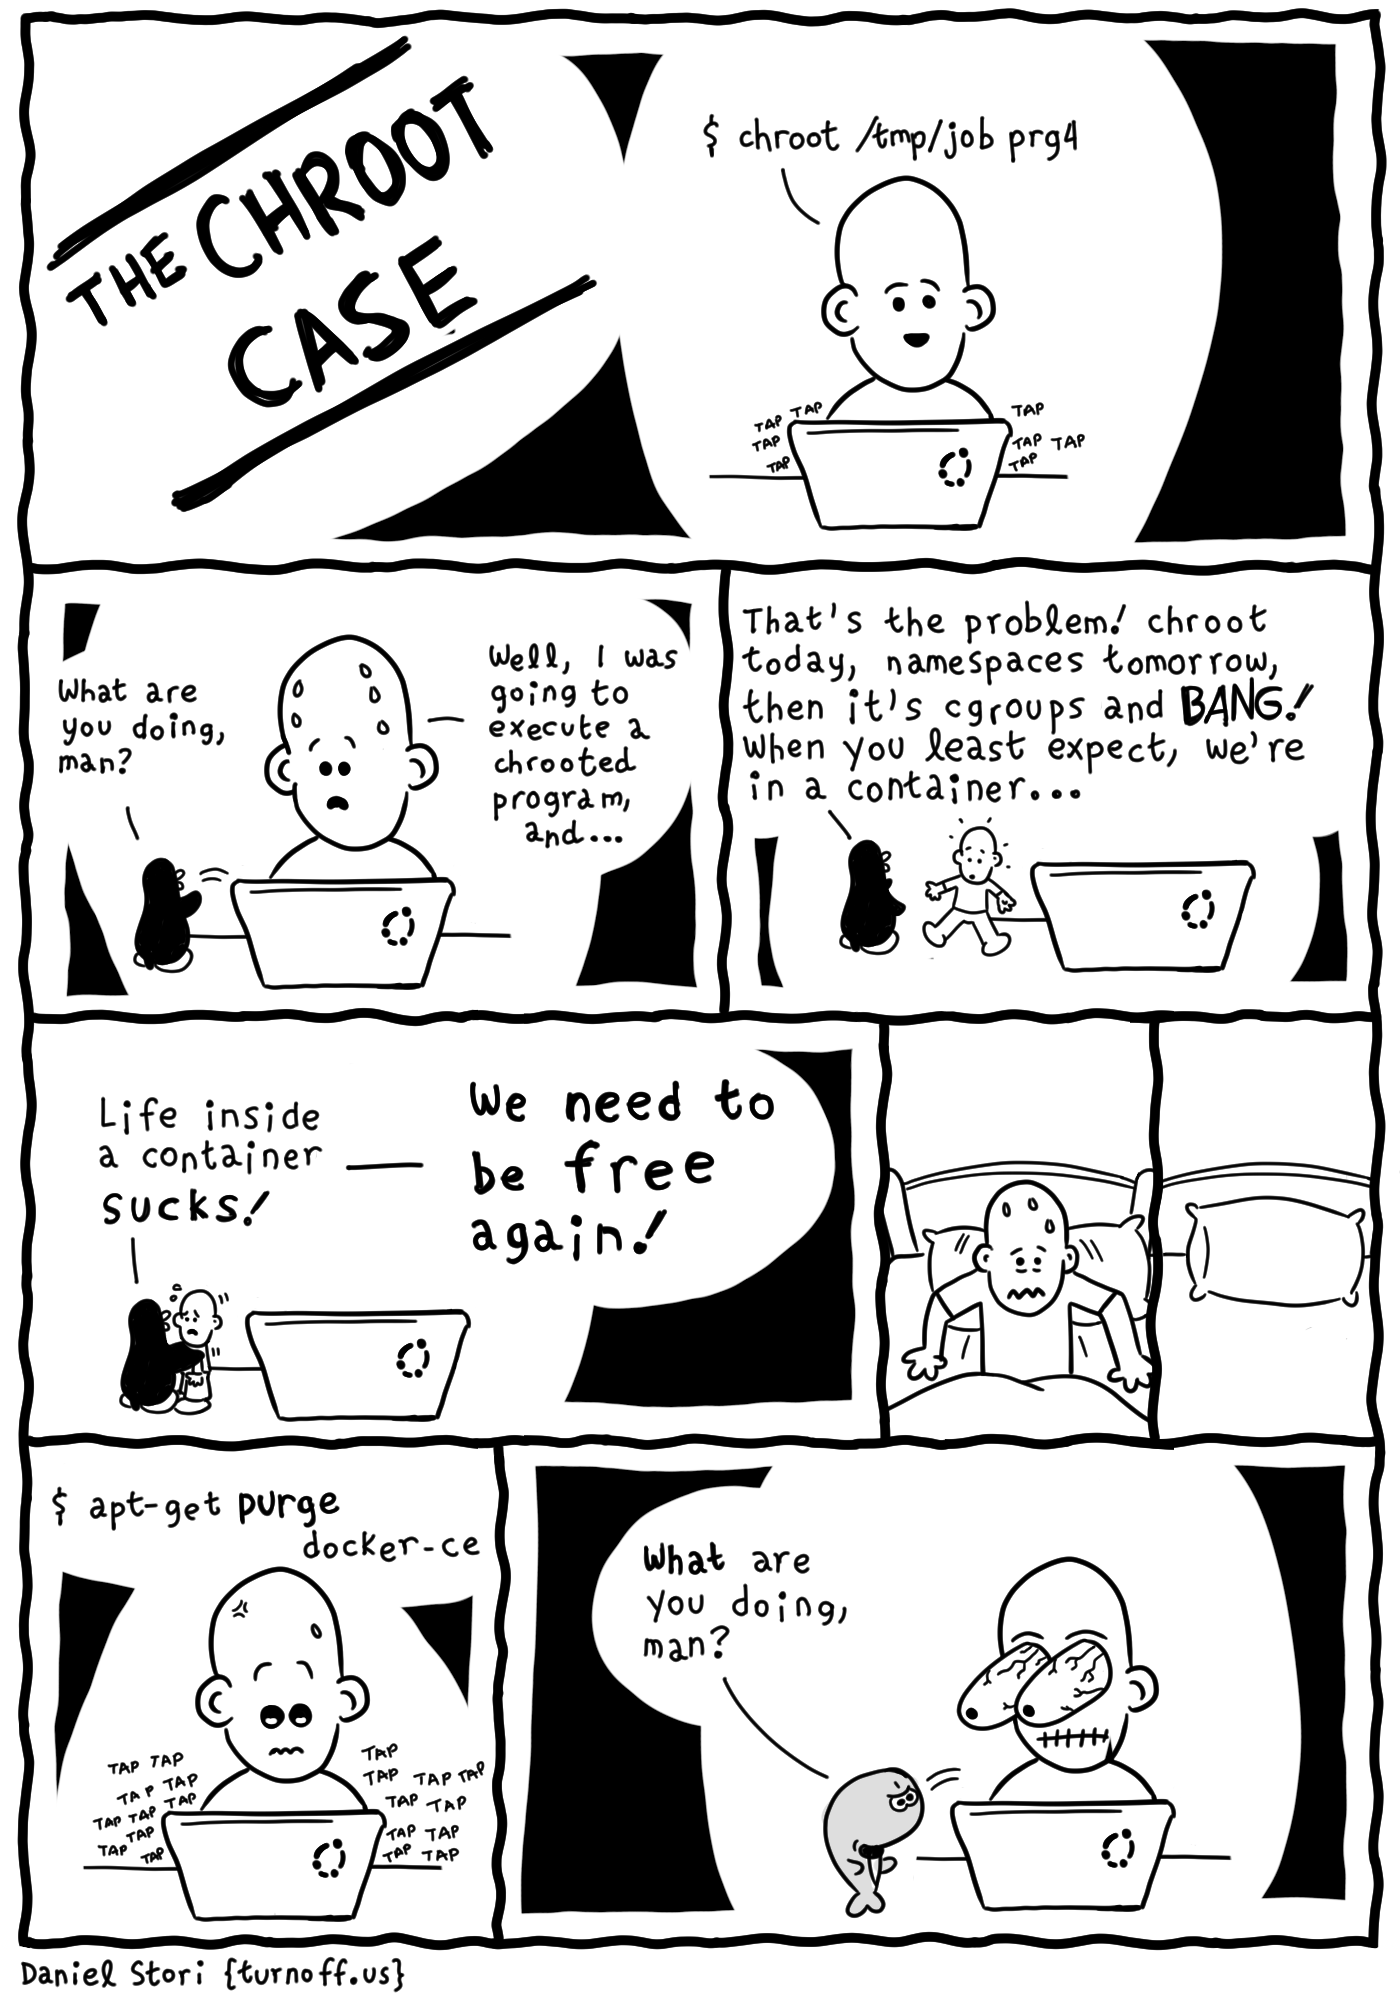 THE CHROOT
CASE
$ chroot /tmp/job prg4
TAP TAP
TAP
TAP
TAP
TAP TAP
TAP
TAP
What are
you doing,
man?
Well, I was
going to
execute a
chrooted
program,
and...
That's the problem! chroot
today, namespaces tomorrow,
then it's cgroups and BANG!
When you least expect, we're
in a container...
Life inside
a container
sucks!
We need to
be free
again!
$ apt-get purge
docker-ce
TAP TAP
TAP TAP
TAP TAP TAP
TAP
TAP TAP
TAP
TAP TAP TAP
TAP TAP
TAP TAP
TAP TAP
What are
you doing,
man?
Daniel Stori {turnoff.us}